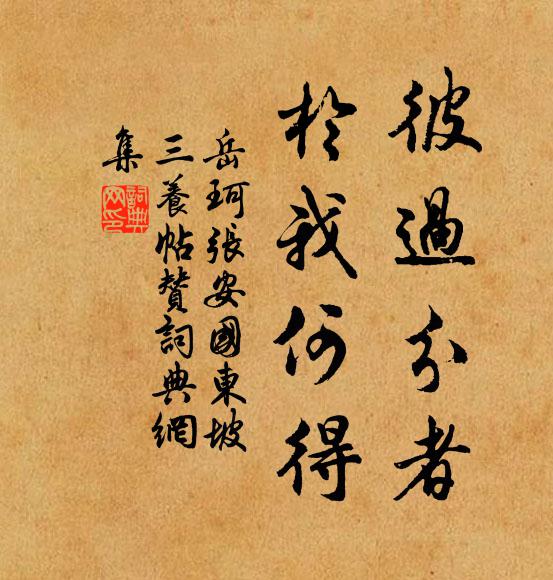 彼過分者
於我何得
岳珂張安國東坡
三養帖贊詞典網
集
詞典
网印